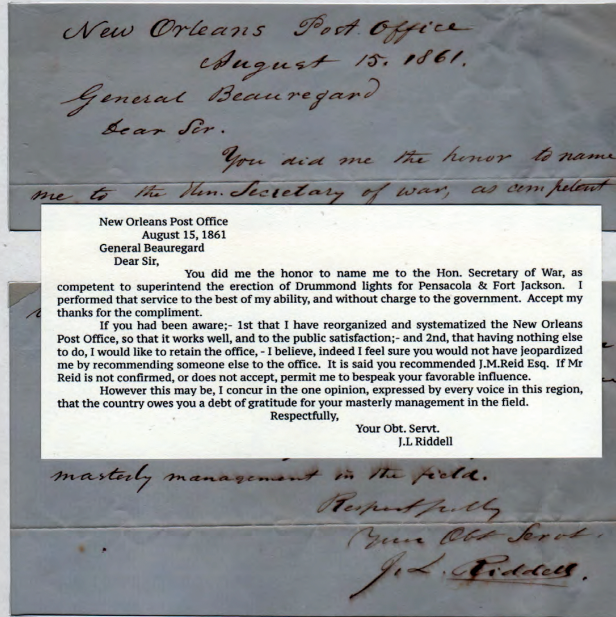 New Orleans Post Office
August 15. 1861.
General Beauregard
Dear Sir.
You did me the honor to name
me to the Hon. Secretary of war, as competent
New Orleans Post Office
August 15, 1861
General Beauregard
Dear Sir,
You did me the honor to name me to the Hon. Secretary of War, as
competent to superintend the erection of Drummond lights for Pensacola & Fort Jackson. I
performed that service to the best of my ability, and without charge to the government. Accept my
thanks for the compliment.
If you had been aware;- 1st that I have reorganized and systematized the New Orleans
Post Office, so that it works well, and to the public satisfaction;- and 2nd, that having nothing else
to do, I would like to retain the office, - I believe, indeed I feel sure you would not have jeopardized
me by recommending someone else to the office. It is said you recommended J.M.Reid Esq. If Mr
Reid is not confirmed, or does not accept, permit me to bespeak your favorable influence.
However this may be, I concur in the one opinion, expressed by every voice in this region,
that the country owes you a debt of gratitude for your masterly management in the field.
Respectfully,
Your Obt. Servt.
J.L Riddell
masterly management in the field.
Respectfully
Your Obt Servt.
J. L. Riddell.